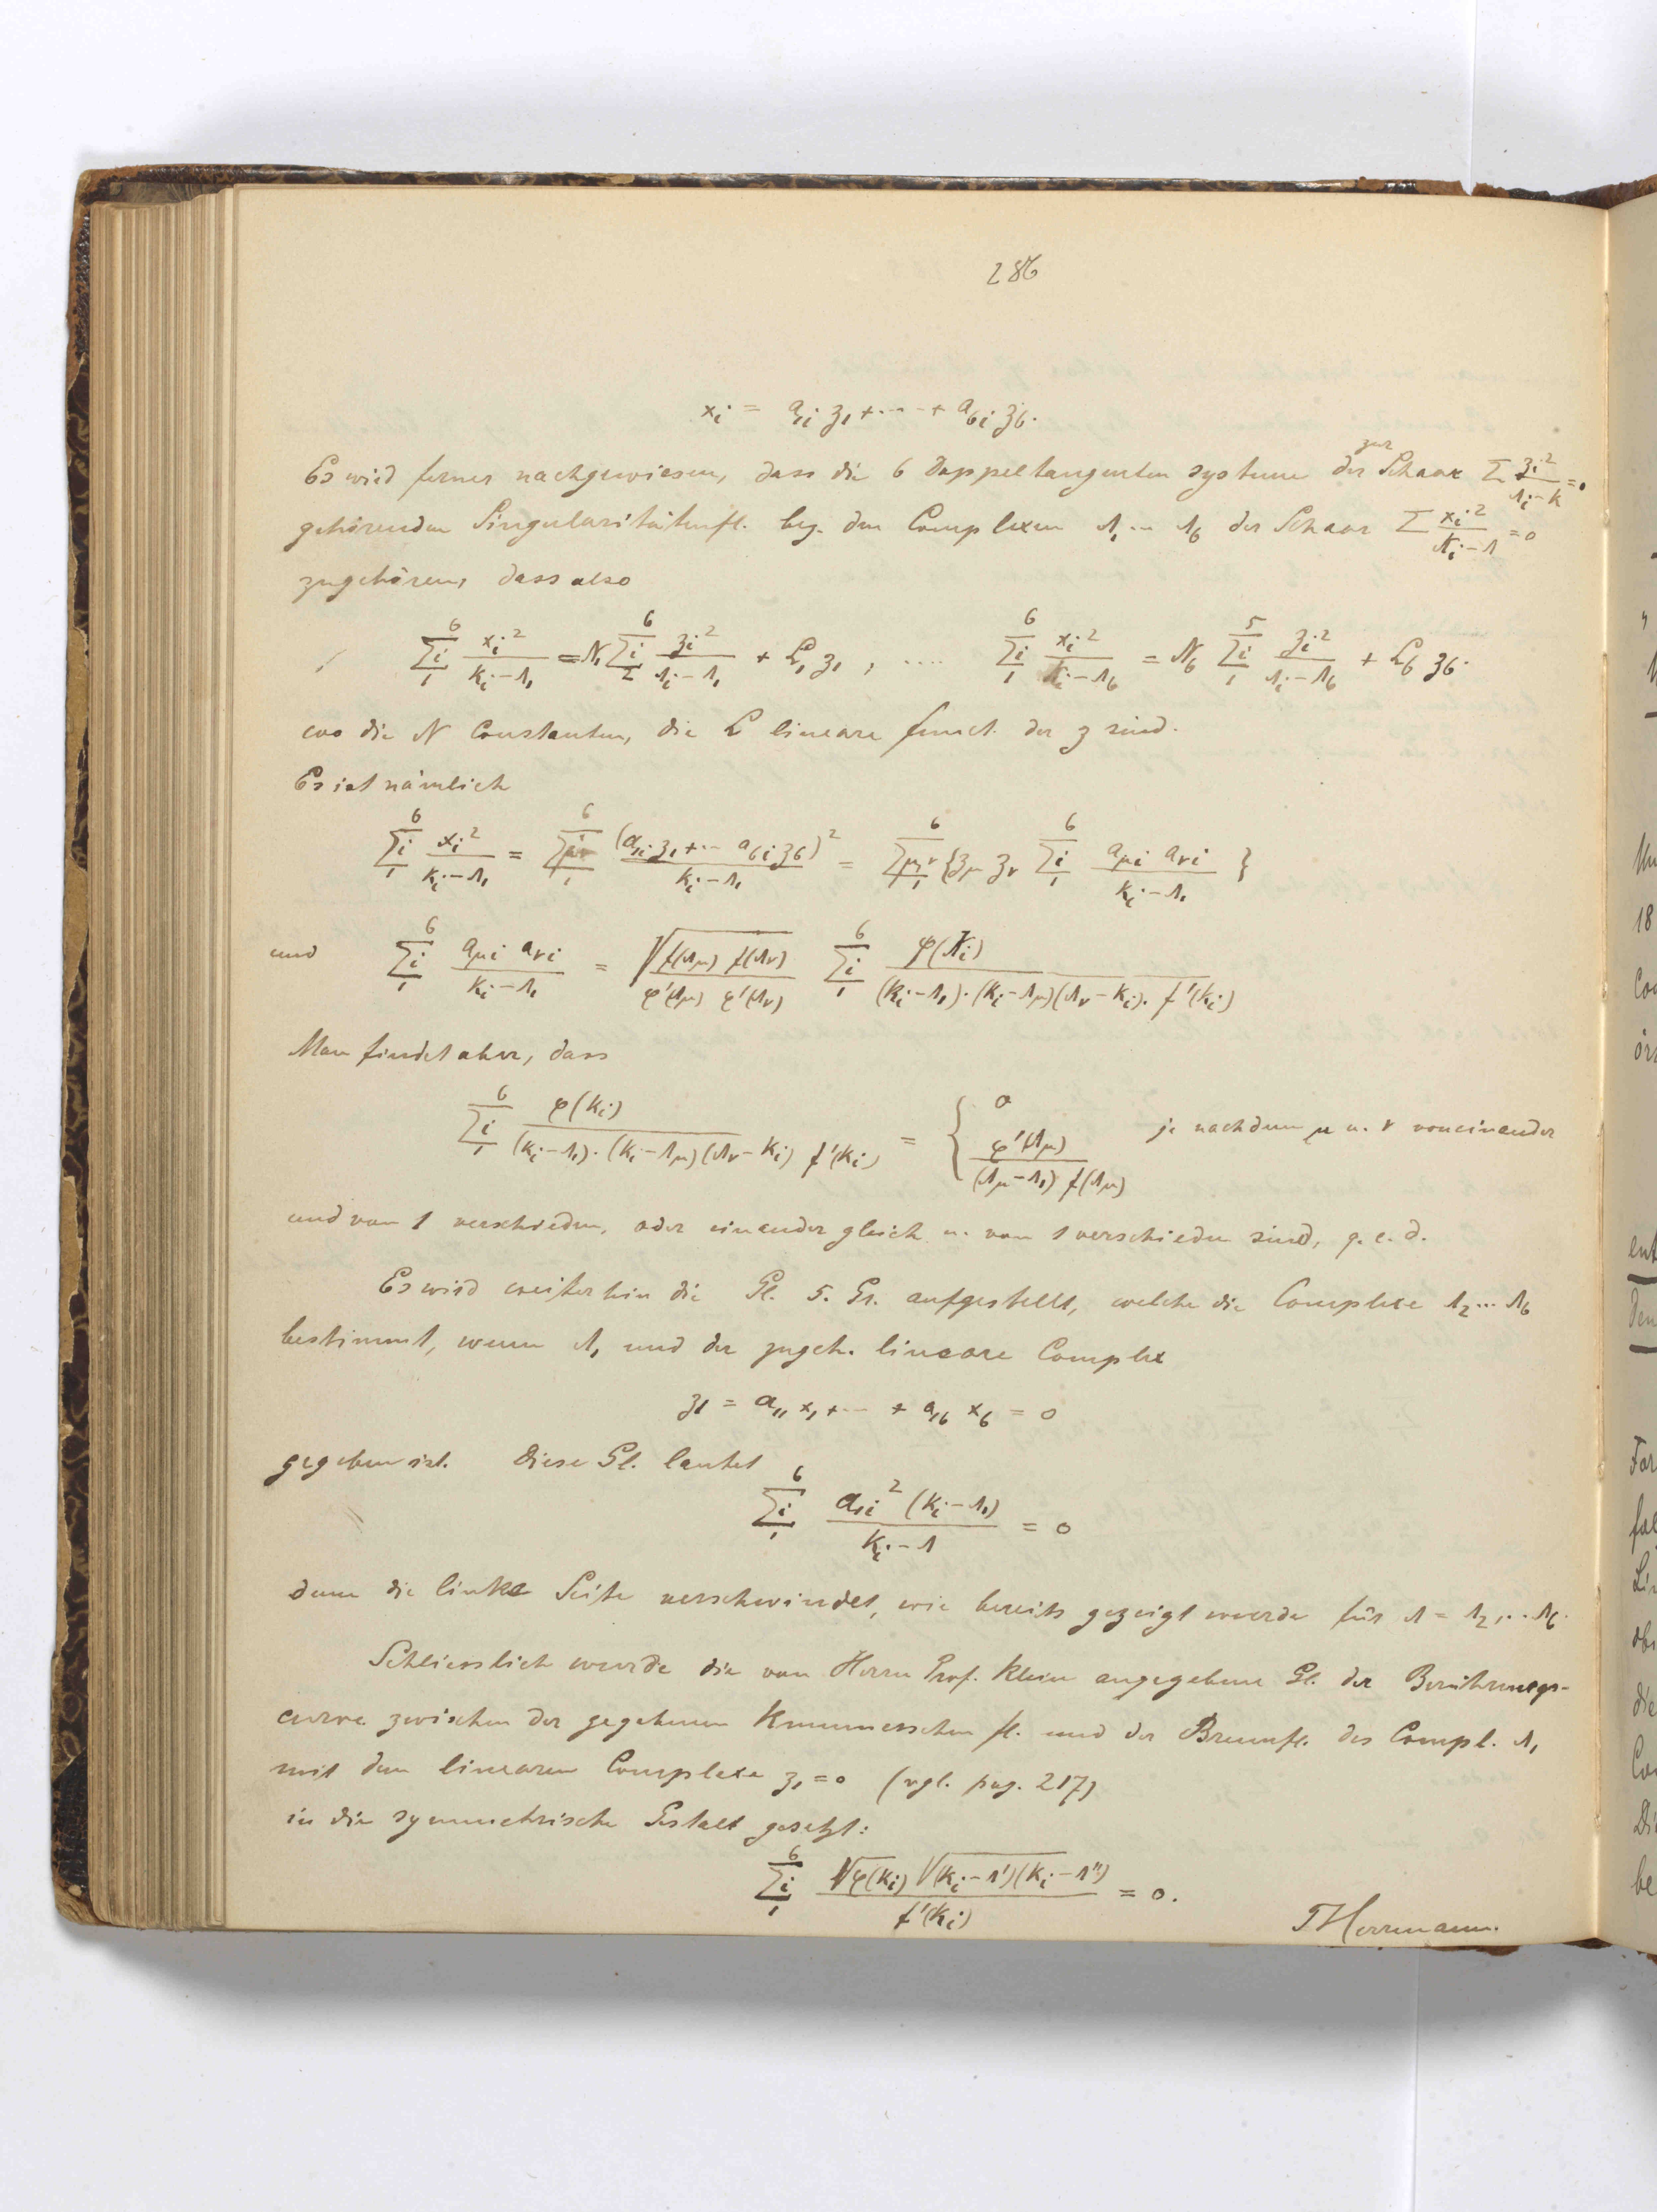 286
x_i = a_{1i} z_1 + ··· + a_{6i} z_6.
Es wird ferner nachgewiesen, dass die 6 Doppeltangentensysteme der zur Schaar Σ z_i²/(λ_i − k) = 0
gehörenden Singularitätenfl. bez. den Complexen λ_1 ... λ_6 der Schaar Σ x_i²/(k_i − λ) = 0
zugehören, dass also
Σ_i{1}^{6} x_i²/(k_i − λ_1) = N_1 Σ_i{2}^{6} z_i²/(λ_i − λ_1) + L_1 z_1 , .... Σ_i{1}^{6} x_i²/(k_i − λ_6) = N_6 Σ_i{1}^{5} z_i²/(λ_i − λ_6) + L_6 z_6.
wo die N Constanten, die L lineare funct. der z sind.
Es ist nämlich
Σ_i{1}^{6} x_i²/(k_i − λ_1) = Σ{1}^{6} (a_{1i} z_1 + ·· a_{6i} z_6)²/(k_i − λ_1) = Σ_{μν}{1}^{6} { z_μ z_ν Σ_i{1}^{6} a_{μi} a_{νi}/(k_i − λ_1) }
und Σ_i{1}^{6} a_{μi} a_{νi}/(k_i − λ_1) = √(f(λ_μ) f(λ_ν)/φ'(λ_μ) φ'(λ_ν)) Σ_i{1}^{6} φ(k_i)/((k_i − λ_1)·(k_i − λ_μ)(λ_ν − k_i)· f'(k_i))
Man findet aber, dass
Σ_i{1}^{6} φ(k_i)/((k_i − λ_1)·(k_i − λ_μ)(λ_ν − k_i) f'(k_i)) = { 0 ; φ'(λ_μ)/((λ_μ − λ_1) f(λ_μ)) je nachdem μ u. ν voneinander
und von 1 verschieden, oder einander gleich u. von 1 verschieden sind, q. e. d.
Es wird weiterhin die Gl. 5. Gr. aufgestellt, welche die Complexe λ_2 ... λ_6
bestimmt, wenn λ_1 und der zugeh. lineare Complex
z_1 = a_{11} x_1 + ··· + a_{16} x_6 = 0
gegeben ist. Diese Gl. lautet
Σ_i{1}^{6} a_{1i}² (k_i − λ_1)/(k_i − λ) = 0
denn die linke Seite verschwindet, wie bereits gezeigt wurde für λ = λ_2, ·· λ_6.
Schliesslich wurde die von Herrn Prof. Klein angegebene Gl. der Berührungs-
curve zwischen der gegebenen Kummerschen fl. und der Brennfl. des Compl. λ_1
mit dem linearen Complexe z_1 = 0 (vgl. pag. 217)
in die symmetrische Gestalt gesetzt:
Σ_i{1}^{6} √φ(k_i) √(k_i − λ')(k_i − λ'')/f'(k_i) = 0.
Herrmann.